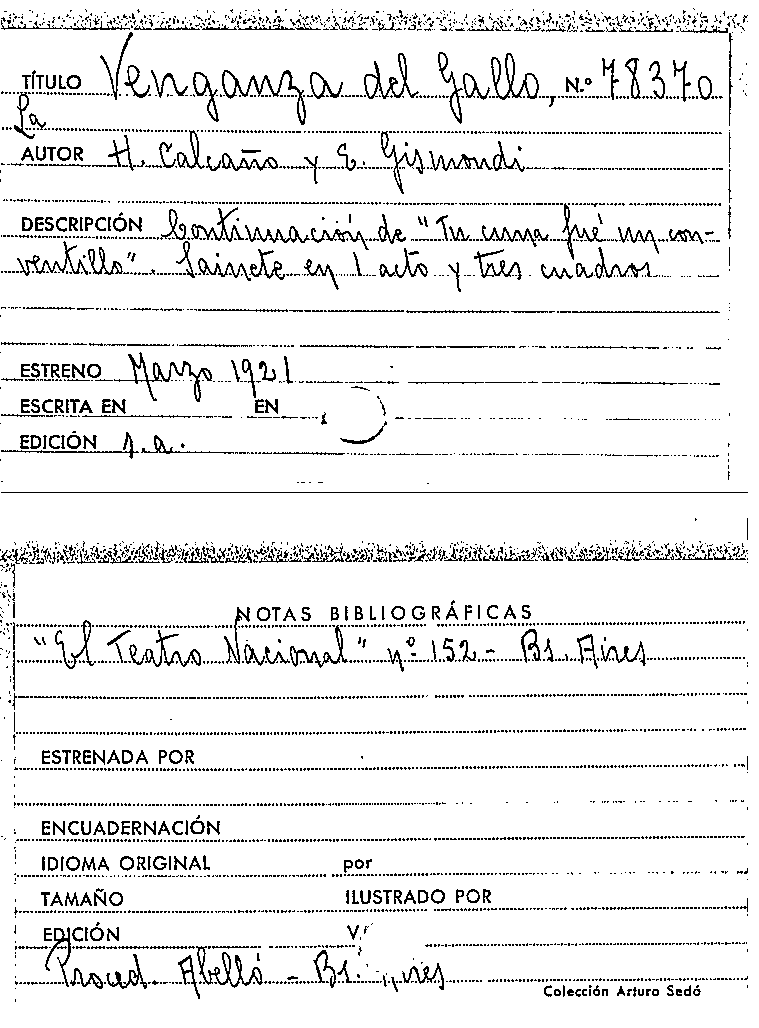 TÍTULO Venganza del Gallo, N.º 78370
La
AUTOR H. Calcaño y E. Gismondi
DESCRIPCIÓN Continuación de "Tu cuna fué un con-
ventillo". Sainete en 1 acto y tres cuadros
ESTRENO Marzo 1921
ESCRITA EN EN
EDICIÓN s.a.
NOTAS BIBLIOGRÁFICAS
"El Teatro Nacional" nº 152 - Bs. Aires
ESTRENADA POR
ENCUADERNACIÓN
IDIOMA ORIGINAL por
TAMAÑO ILUSTRADO POR
EDICIÓN
Proced. Abelló - Bs. Aires
Colección Arturo Sedó